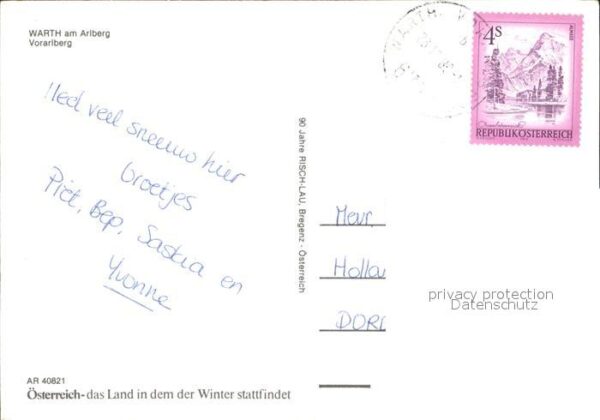 WARTH am Arlberg
Vorarlberg
Heel veel sneeuw hier
Groetjes
Piet, Bep, Saskia en
Yvonne
90 Jahre RISCH-LAU, Bregenz - Österreich
WARTH
4S
ALMSEE
REPUBLIK ÖSTERREICH
Mevr.
Hollau
DORD
privacy protection
Datenschutz
AR 40821
Österreich-das Land in dem der Winter stattfindet